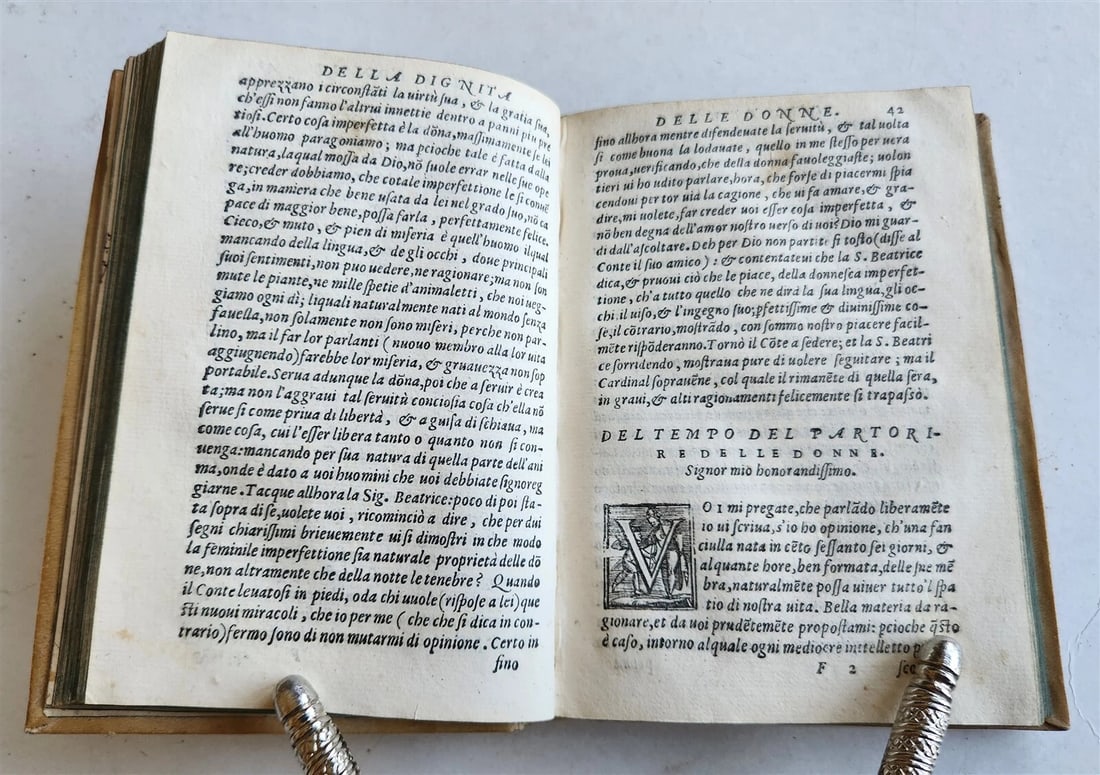 DELLA DIGNITA
apprezzano i circonstāti la virtù sua, & la gratia sua,
ch'essi non fanno l'altrui innettie dentro a panni piu pre
tiosi. Certo cosa imperfetta è la dōna, massimamente se lei
all'huomo paragoniamo; ma pcioche tale è fatta dalla
natura, laqual mossa da Dio, nō suole errar nelle sue ope
re; creder dobbiamo, che cotale imperfettione le si conuē
ga, in maniera che bene usata da lei nel grado suo, nō ca
pace di maggior bene, possa farla, perfettamente felice.
Cieco, & muto, & pien di miseria è quell'huomo ilqual
mancando della lingua, & de gli occhi, doue principali
suoi sentimenti, non puo uedere, ne ragionare; ma non son
mute le piante, ne mille spetie d'animaletti, che noi ueg-
giamo ogni dì; liquali naturalmente nati al mondo senza
fauella, non solamente non sono miseri, perche non par-
lino, ma il far lor parlanti (nuouo membro alla lor uita
aggiugnendo) farebbe lor miseria, & gruauezza non sop
portabile. Serua adunque la dōna, poi che a seruir è crea
ta; ma non l'aggraui tal seruitù conciosia cosa ch'ella nō
serue si come priua di libertà, & a guisa di schiaua, ma
come cosa, cui l'esser libera tanto o quanto non si con-
uenga: mancando per sua natura di quella parte dell'ani
ma, onde è dato a uoi huomini che uoi debbiate signoreg
giarne. Tacque allhora la Sig. Beatrice: poco di poi sta-
ta sopra di se, uolete uoi, ricominciò a dire, che per dui
segni chiarissimi brieuemente ui si dimostri in che modo
la feminile imperfettione sia naturale proprietà delle dō
ne, non altramente che della notte le tenebre? Quando
il Conte leuatosi in piedi, oda chi uuole (rispose a lei) que
sti nuoui miracoli, che io per me (che che si dica in con-
trario) fermo sono di non mutarmi di opinione. Certo in
fino
DELLE DONNE. 42
fino allhora mentre difendeuate la seruitù, & tal uolta
si come buona la lodauate, quello in me stesso per uera
proua, uerificando, che della donna fauoleggiaste; uolon
tieri ui ho udito parlare, hora, che forse di piacermi spia
cendoui per tor uia la cagione, che ui fa amare, & gra-
dire, mi uolete, far creder uoi esser cosa imperfetta, &
nō ben degna dell'amor nostro uerso di uoi? Dio mi guar-
di dall'ascoltare. Deh per Dio non partite si tosto (disse al
Conte il suo amico): & contentateui che la S. Beatrice
dica, & pruoui ciò che le piace, della donnesca imperfet-
tione, ch'a tutto quello che ne dirà la sua lingua, gli oc-
chi, il uiso, & l'ingegno suo; pfettissime & diuinissime co-
se, il cōtrario, mostrādo, con sommo nostro piacere facil-
mēte rispōderanno. Tornò il Cōte a sedere; et la S. Beatri
ce sorridendo, mostraua pure di uolere seguitare; ma il
Cardinal soprauēne, col quale il rimanēte di quella sera,
in graui, & alti ragionamenti felicemente si trapassò.
DEL TEMPO DEL PARTORI-
RE DELLE DONNE.
Signor mio honorandissimo.
VOI mi pregate, che parlādo liberamēte
io ui scriua, s'io ho opinione, ch'una fan
ciulla nata in cēto sessanto sei giorni, &
alquante hore, ben formata, delle sue mē
bra, naturalmēte possa uiuer tutto'l spa
tio di nostra uita. Bella materia da ra-
gionare, et da uoi prudētemēte propostami: pcioche q̄sto
è caso, intorno alquale ogni mediocre intelletto
F 2